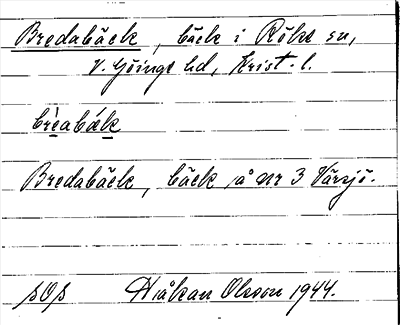 Bredabäck, bäck i Röke sn,
V. Göinge hd, Krist. l.
brèabǽk
Bredabäck, bäck å nr 3 Värsjö.
sOs Håkan Olsson 1944.